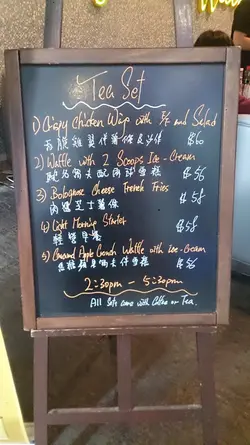 Tea Set
1) Crispy Chicken Wing with F/F and Salad
$60
2) Waffle with 2 Scoops Ice-Cream
$56
3) Bolognese Cheese French Fries
肉醬芝士薯條 $58
4) Light Morning Starter
輕盈早餐 $58
5) Caramel Apple Crunch Waffle with Ice-Cream
$56
2:30pm - 5:30pm
All Sets come with Coffee or Tea.